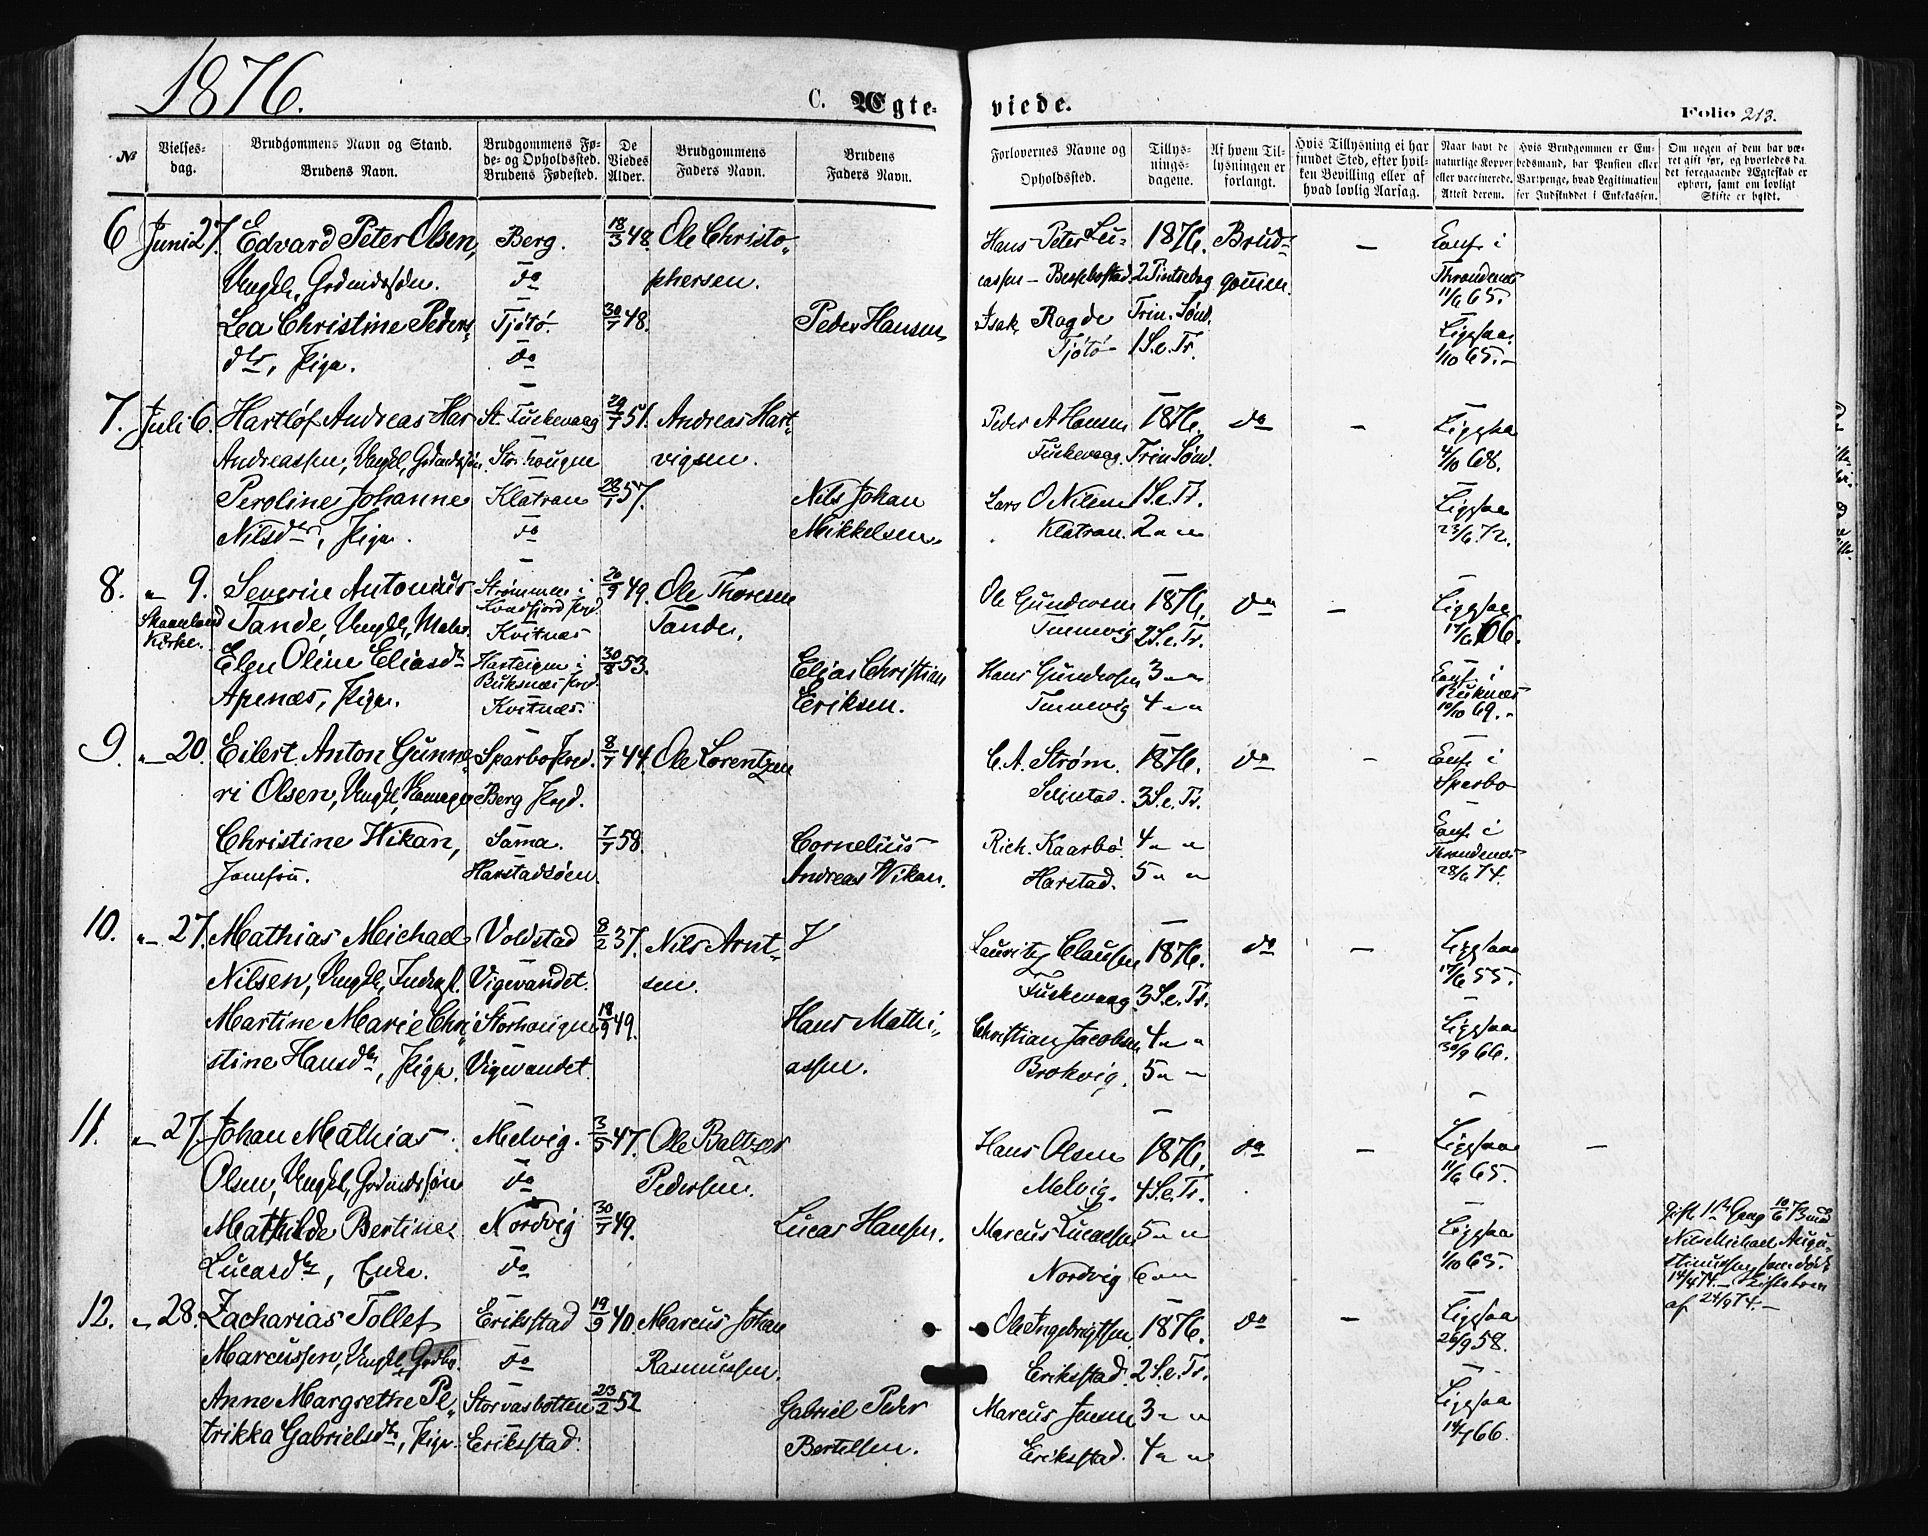 1876.
C. Ægte-
viede.
Folio 213.
№
Vielses-
dag.
Brudgommens Navn og Stand.
Brudens Navn.
Brudgommens Fø-
de- og Opholdssted.
Brudens Fødested.
De
Viedes
Alder.
Brudgommens
Faders Navn.
Brudens
Faders Navn.
Forlovernes Navne og
Opholdssted.
Tillys-
nings-
dagene.
Af hvem Til-
lysningen er
forlangt.
Hvis Tillysning ei har
fundet Sted, efter hvil-
ken Bevilling eller af
hvad lovlig Aarsag.
Naar havt de
naturlige Kopper
eller vaccinerede.
Attest derom.
Hvis Brudgommen er Em-
bedsmand, har Pension eller
Vartpenge, hvad Legitimation
for Indskuddet i Enkekassen.
Om nogen af dem har væ-
ret gift før, og hvorledes da
det foregaaende Ægteskab er
ophørt, samt om lovligt
Skifte er holdt.
6 Juni 27. Edvard Peter Olsen, Berg. 18/3 48. Ole Christo- Hans Peter Lu- 1876. Brud- — Conf. i
Ungk, Grdmdssøn. do phersen. cassen – Bessebostad 2 Pintsedag gommen. Throndenæs
11/6 65.
Lea Christine Peders- Tjøtø. 30/7 48. Peder Hansen Isak Ragde Trin. Sønd. Ligesaa
dtr, Pige. do Tjøtø 1 S. e. Tr. 1/10 65.
7. Juli 6. Hartløf Andreas Har St. Fuskevaag 29/7 51. Andreas Hart- Peder A Hansen 1876. do — Ligesaa
Andreassen, Ungk, Grdmdssøn. Storhaugen vigsen. Fuskevaag. Trin Sønd. 4/10 68.
Peroline Johanne Klatran 28/1 57. Nils Johan Lars O Nilsen 1 S. e. Tr. Ligesaa
Nilsdtr, Pige. do Mikkelsen. Klatran. 2 " " 23/6 72.
8. " 9. Severin Antonius Strømmen i 20/9 49. Ole Thoresen Ole Gundersen 1876. do — Ligesaa
Skaanland Kvædfjord Pgd.
Kirke. Tande, Ungk, Maler. Kvitnæs Tande. 2 S. e. Tr. 66.
Elen Oline Eliasdtr i 30/8 53. Elias Christian Hans Gundersen 3 " " Conf. i
Buksnæs Pgd. Buknæs
Apenæs, Pige. Kvitnæs. Eriksen. 4 " " 10/10 69.
9. " 20. Eilert Anton Gunne- Sparbo Pgd. 8/7 44. Ole Lorentzen C. A. Strøm. 1876. do — Conf. i
ri Olsen, Ungk, Berg Pgd. 3 S. e. Tr. Sparbo
Christine Wikan, Sama. 7/7 58. Cornelius Rich. Kaarbø. 4 " " Conf. i
Throndenæs
Jomfru. Harstadsøen. Andreas Wikan. Harstad. 5 " " 28/6 74.
10. " 27. Mathias Michael Voldstad 8/2 37. Nils Arnt- Lauritz Clausen 1876. do — Ligesaa
Nilsen, Ungk, Inderst. Vigevandet. sen. Fuskevaag 3 S. e. Tr. 17/6 55.
Martine Marie Chri- Storhaugen 18/9 49. Hans Mathi- Christian Jacobsen 4 " " Ligesaa
stine Hansdtr, Pige. Vigevandet. assen. Brokvig. 5 " " 30/9 66.
11. " 27. Johan Mathias Melvig. 3/5 47. Ole Baltzer Hans Olsen 1876. do — Ligesaa —
Olsen, Ungk, Grdmdssøn do Pedersen. Melvig. 4 S. e. Tr. 11/6 65.
Mathilde Bertine Nordvig 30/7 49. Lucas Hansen. Marcus Lucassen 5 " " Ligesaa
Lucasdtr, Enke. do Nordvig 6 " " 1/10 65.
Gift 1ste Gang 10/6 73 med
Nils Michael Augu-
stinussen som døde
14/4 74. – Skiftebrev
af 24/9 74. –
12. " 28. Zacharias Tollef Eriksstad 19/9 40. Marcus Johan Ole Ingebrigtsen 1876. do — Ligesaa
Marcussen, Ungk, Grdbr. do Rasmussen. Eriksstad. 2 S. e. Tr. 26/9 58.
Anne Margrethe Pe- Storvasbotten 23/2 52 Gabriel Peder Marcus Jensen 3 " " Ligesaa
trikka Gabrielsdtr, Pige. Eriksstad. Bertelsen. Eriksstad. 4 " " 66.